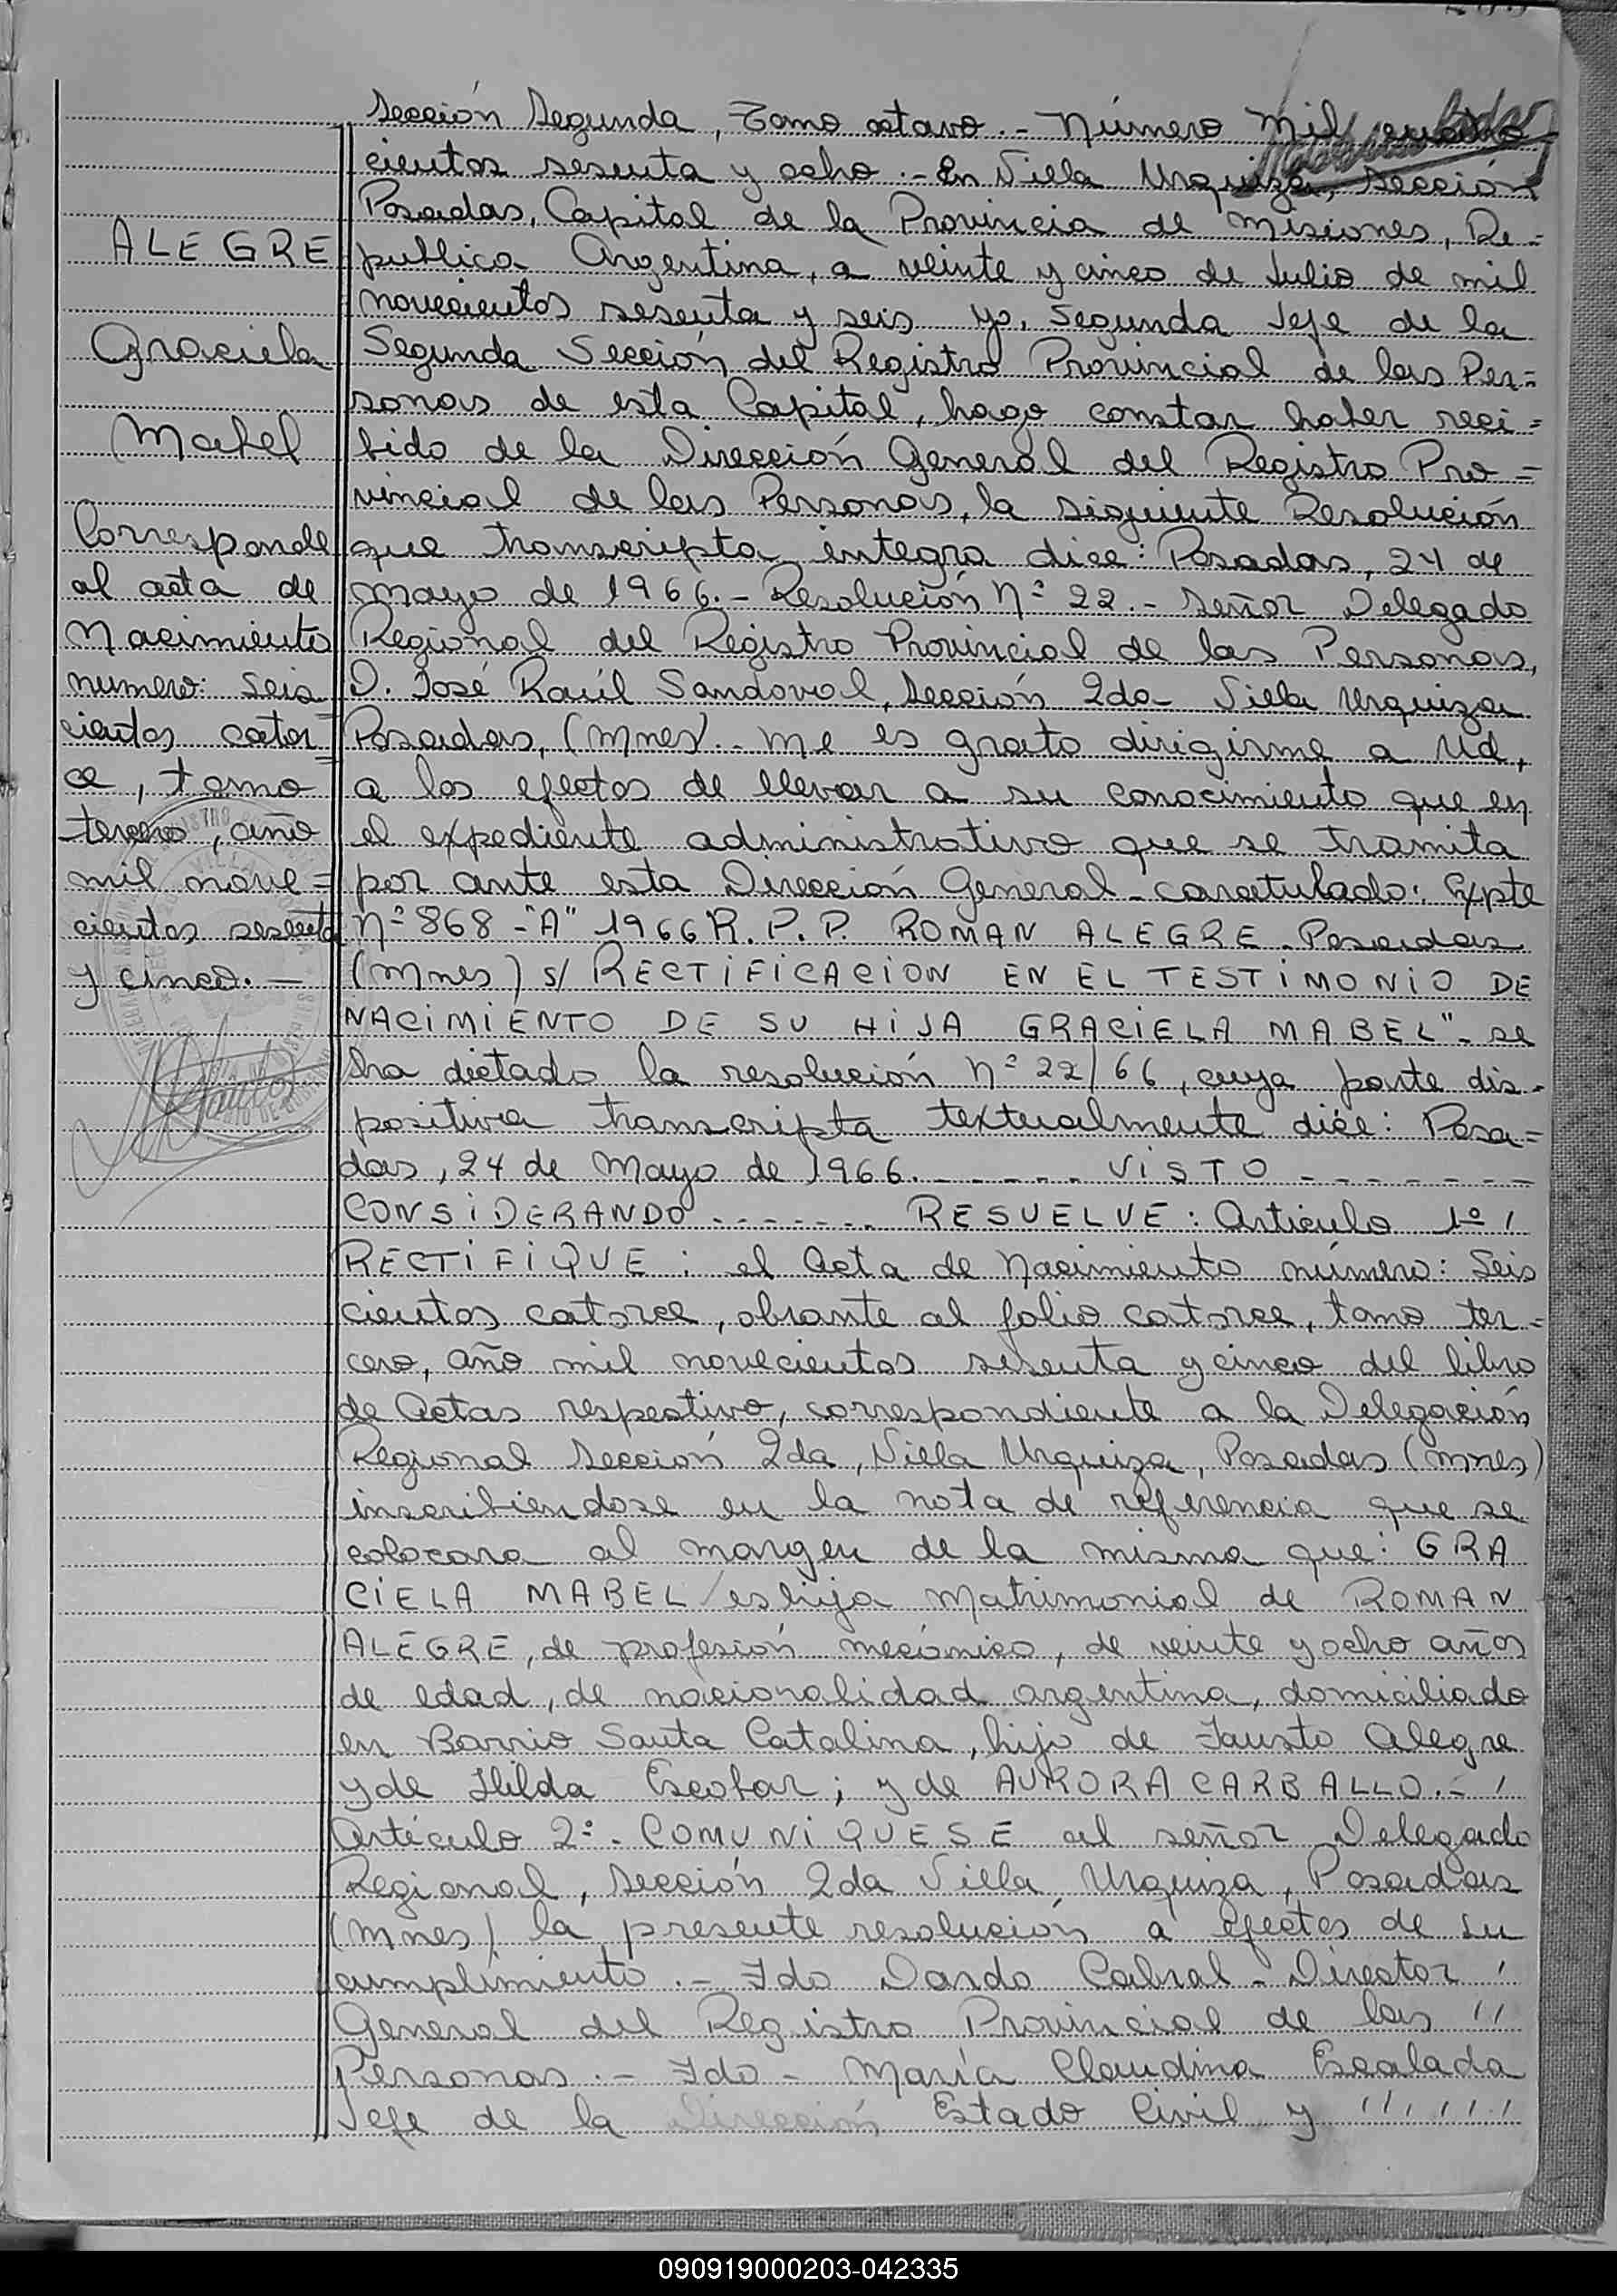 Sección Segunda, Tomo octavo.- Número Mil cuatro
cientos sesenta y ocho.- En Villa Urquiza, Sección
Posadas, Capital de la Provincia de Misiones, Re=
publica Argentina, a veinte y cinco de Julio de mil
novecientos sesenta y seis yo, Segunda Jefe de la
Segunda Sección del Registro Provincial de las Per=
sonas de esta Capital, hago constar haber reci=
bido de la Dirección General del Registro Pro=
vincial de las Personas, la siguiente Resolución
que transcripta integra dice: Posadas, 24 de
mayo de 1966.- Resolución Nº 22.- Señor Delegado
Regional del Registro Provincial de las Personas,
D. José Raúl Sandoval, Sección 2da Villa Urquiza
Posadas, (Mnes).- Me es grato dirigirme a Ud,
a los efectos de llevar a su conocimiento que en
el expediente administrativo que se tramita
por ante esta Dirección General - caratulado: Expte
Nº 868 - "A" 1966 R. P. P. ROMAN ALEGRE - Posadas
(Mnes) s/ RECTIFICACION EN EL TESTIMONIO DE
NACIMIENTO DE SU HIJA GRACIELA MABEL" - se
ha dictado la resolución Nº 22/66, cuya parte dis-
positiva transcripta textualmente dice: Posa=
das, 24 de Mayo de 1966. - - - - - - VISTO - - - - - - -
CONSIDERANDO - - - - - - - RESUELVE: Articulo 1º /
RECTIFIQUE: el Acta de Nacimiento número: Seis
cientos catorce, obrante al folio catorce, tomo ter=
cero, año mil novecientos sesenta y cinco del libro
de Actas respectivo, correspondiente a la Delegación
Regional Sección 2da, Villa Urquiza, Posadas (Mnes)
inscribiendose en la nota de referencia que se
colocara al margen de la misma que: GRA
CIELA MABEL / es hija Matrimonial de ROMAN
ALEGRE, de profesión mecánico, de veinte y ocho años
de edad, de nacionalidad argentina, domiciliado
en Barrio Santa Catalina, hijo de Fausto Alegre
y de Hilda Escobar; y de AURORA CARBALLO.- /
Artículo 2º.- COMUNIQUESE al señor Delegado
Regional, Sección 2da Villa Urquiza, Posadas
(Mnes) la presente resolución a efectos de su
cumplimiento.- Fdo Dardo Cabral - Director /
General del Registro Provincial de las //
Personas.- Fdo - María Claudina Escalada
Jefe de la Dirección Estado Civil y //////
ALEGRE
Graciela
Mabel
Corresponde
al acta de
Nacimiento
numero: Seis
cientos cator=
ce, tomo
tercero, año
mil nove=
cientos sesenta
y cinco.-
090919000203-042335